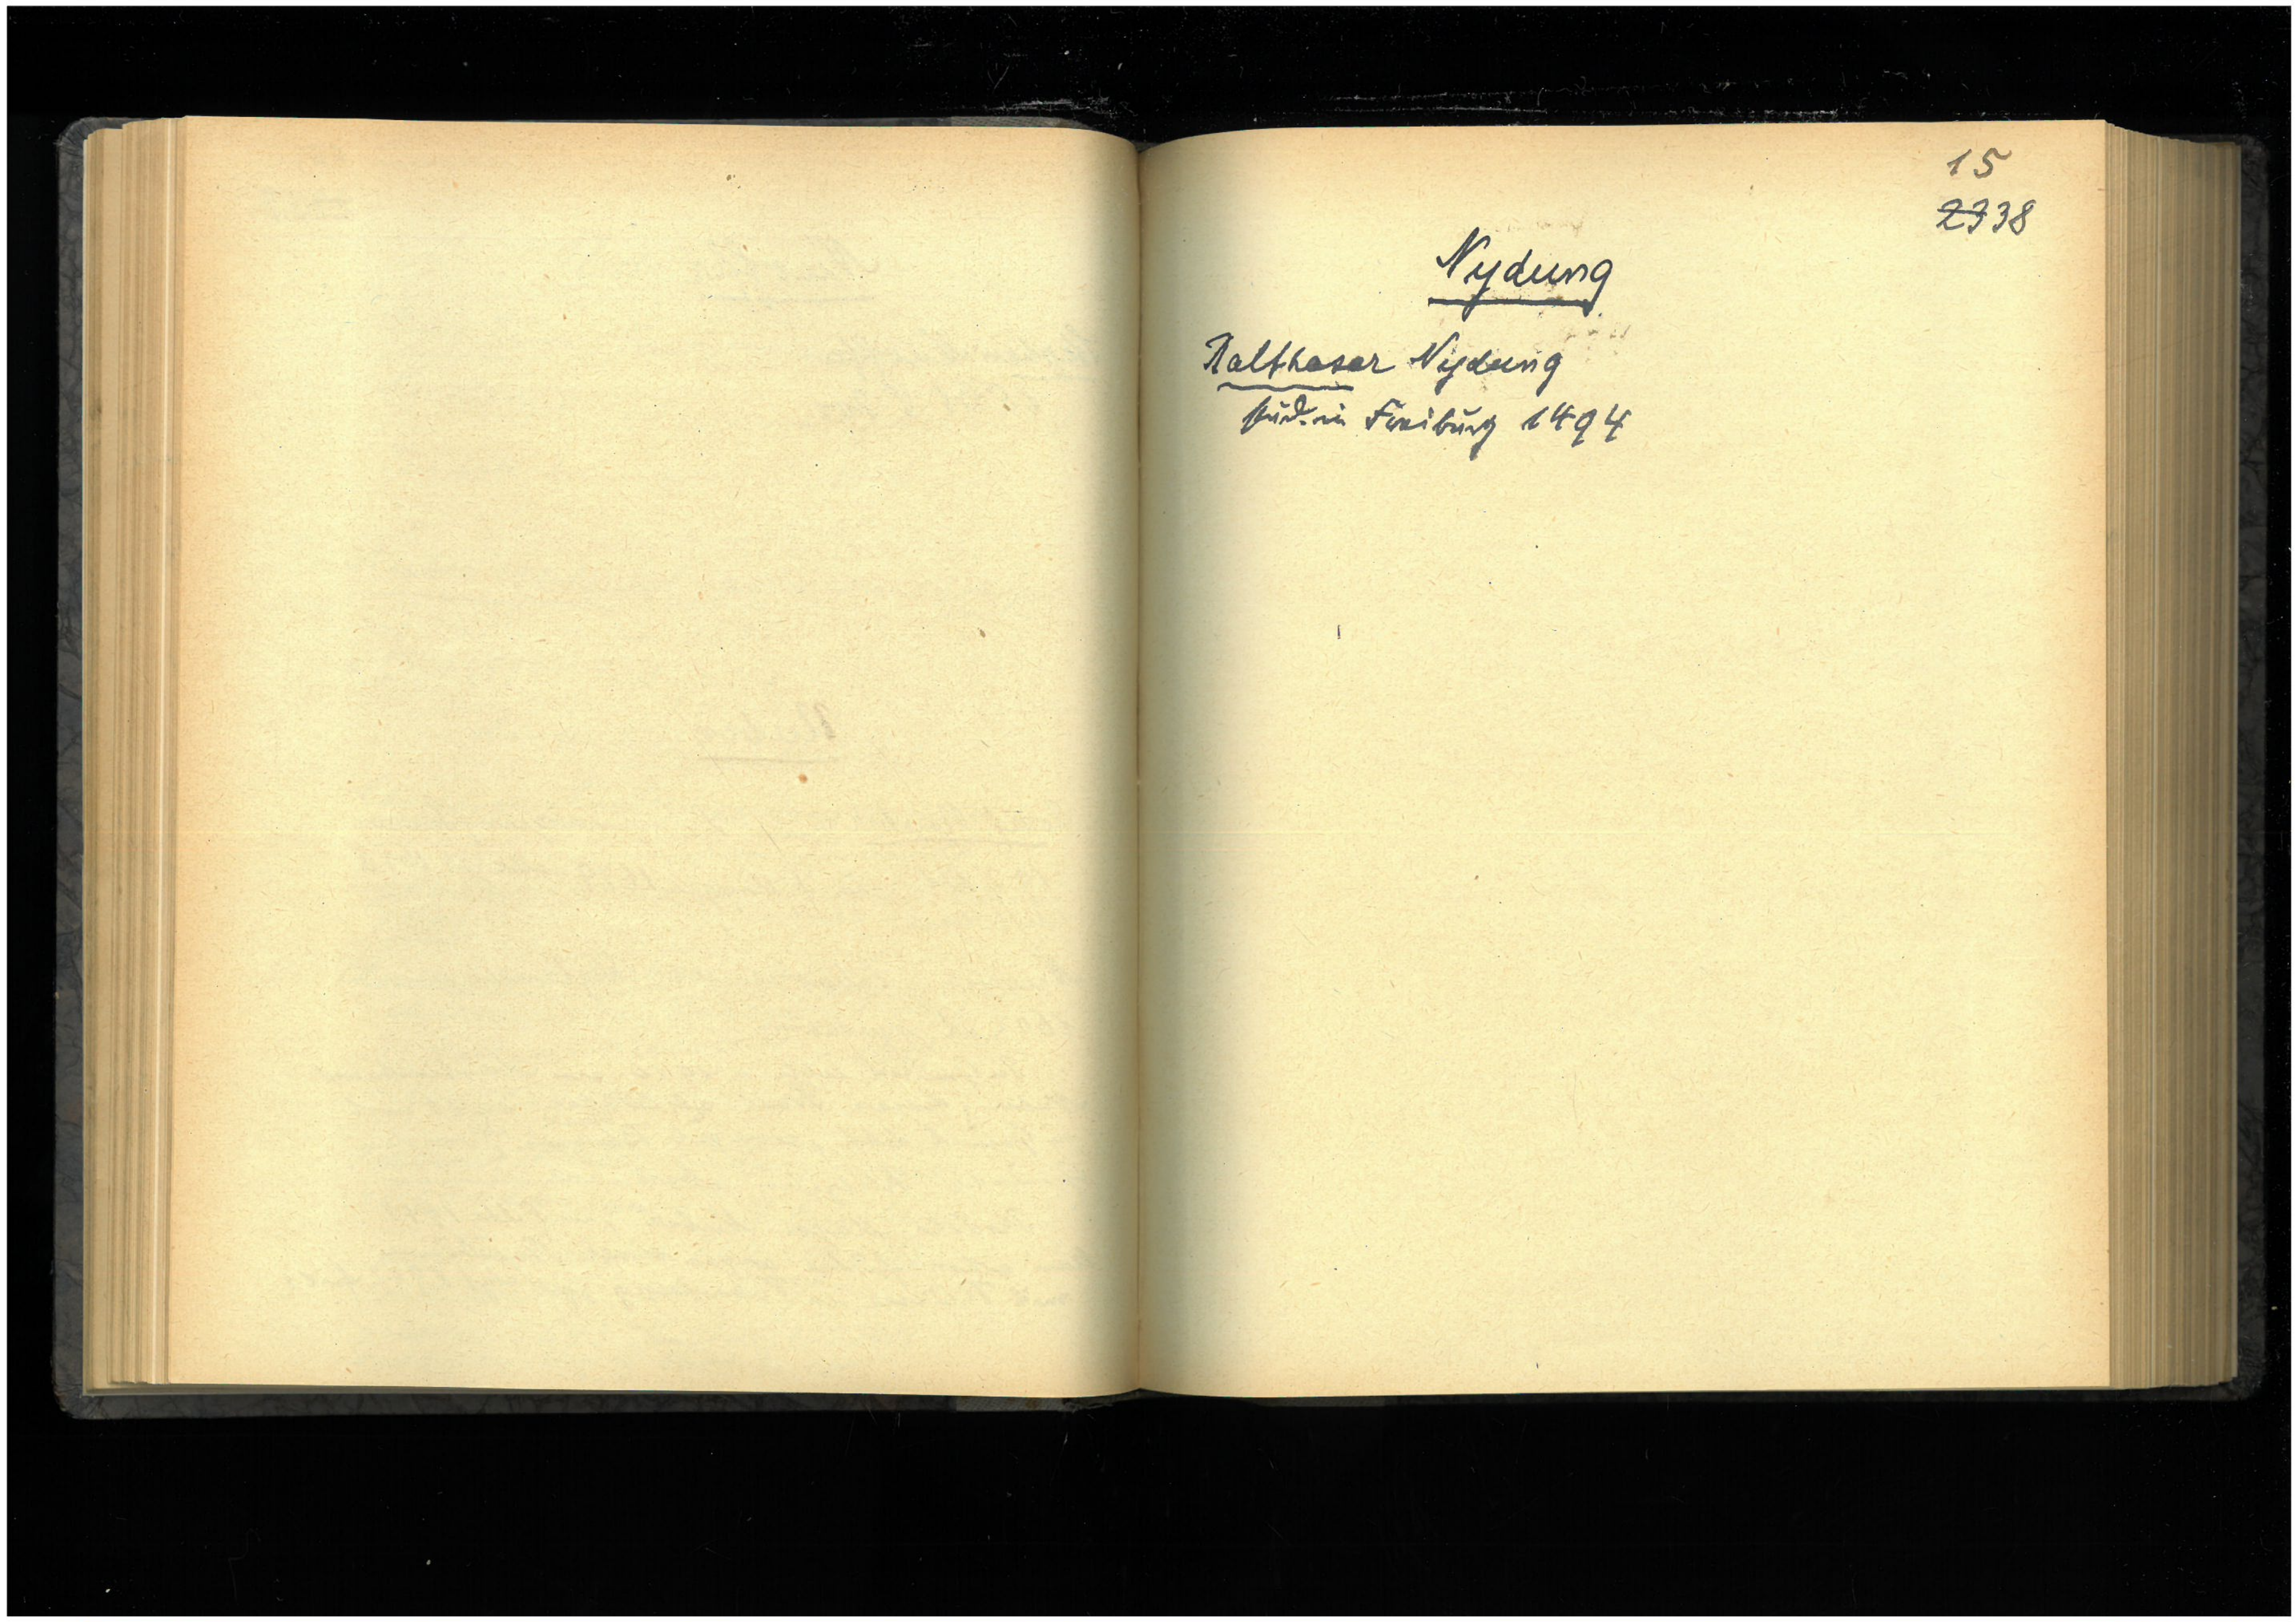 15
2338
Nydung
Balthasar Nydung
stud. in Freiburg 1494